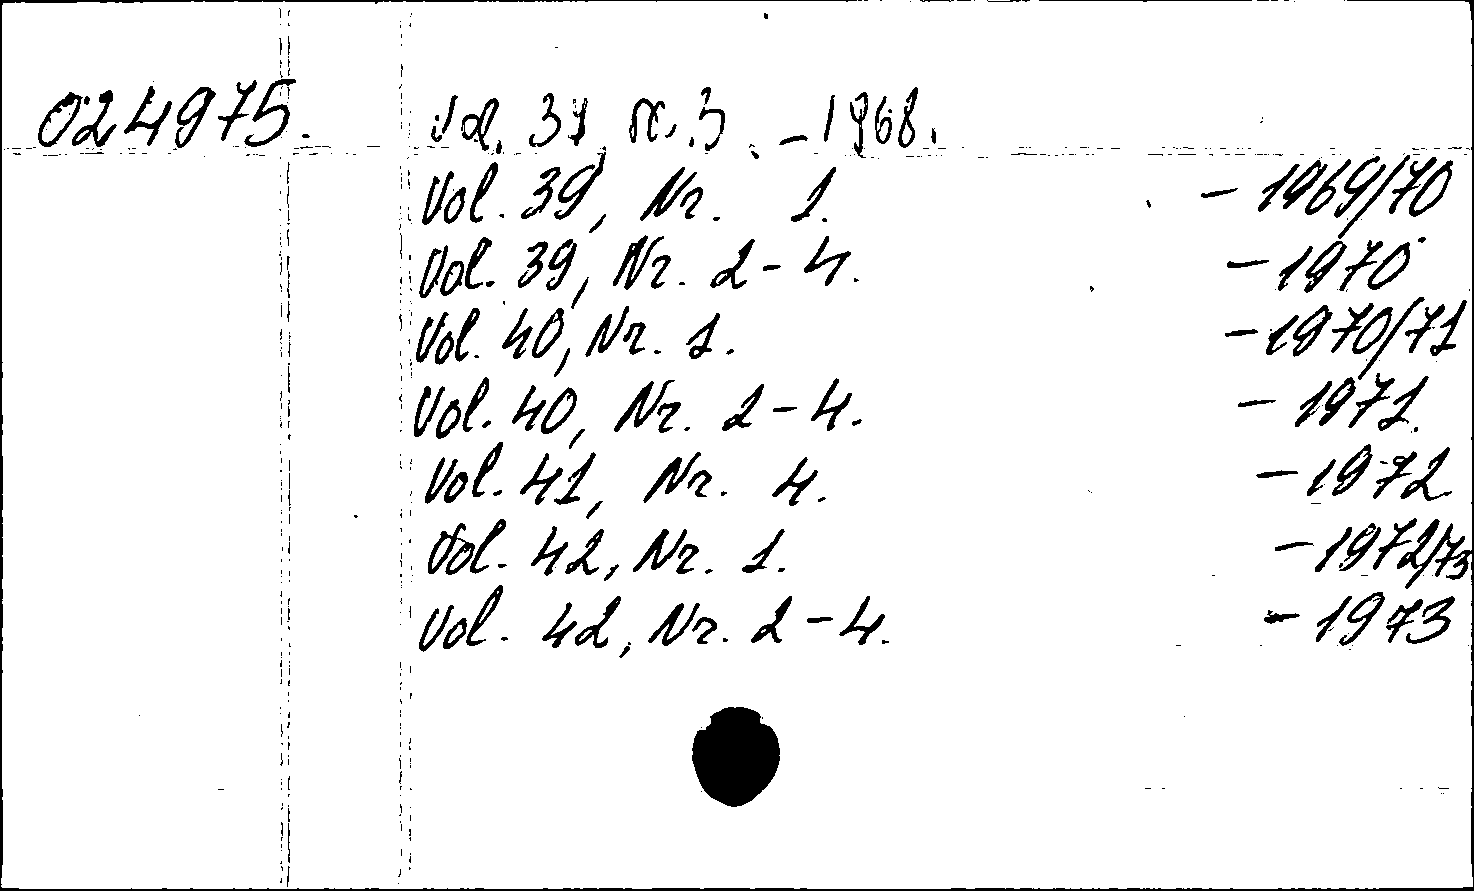 024975. Vol. 37 Nr. 3. - 1968.
Vol. 39, Nr. 1. - 1969/70
Vol. 39, Nr. 2-4. - 1970
Vol. 40, Nr. 1. - 1970/71
Vol. 40, Nr. 2-4. - 1971.
Vol. 41, Nr. 4. - 1972.
Vol. 42, Nr. 1. - 1972/73
Vol. 42, Nr. 2-4. - 1973